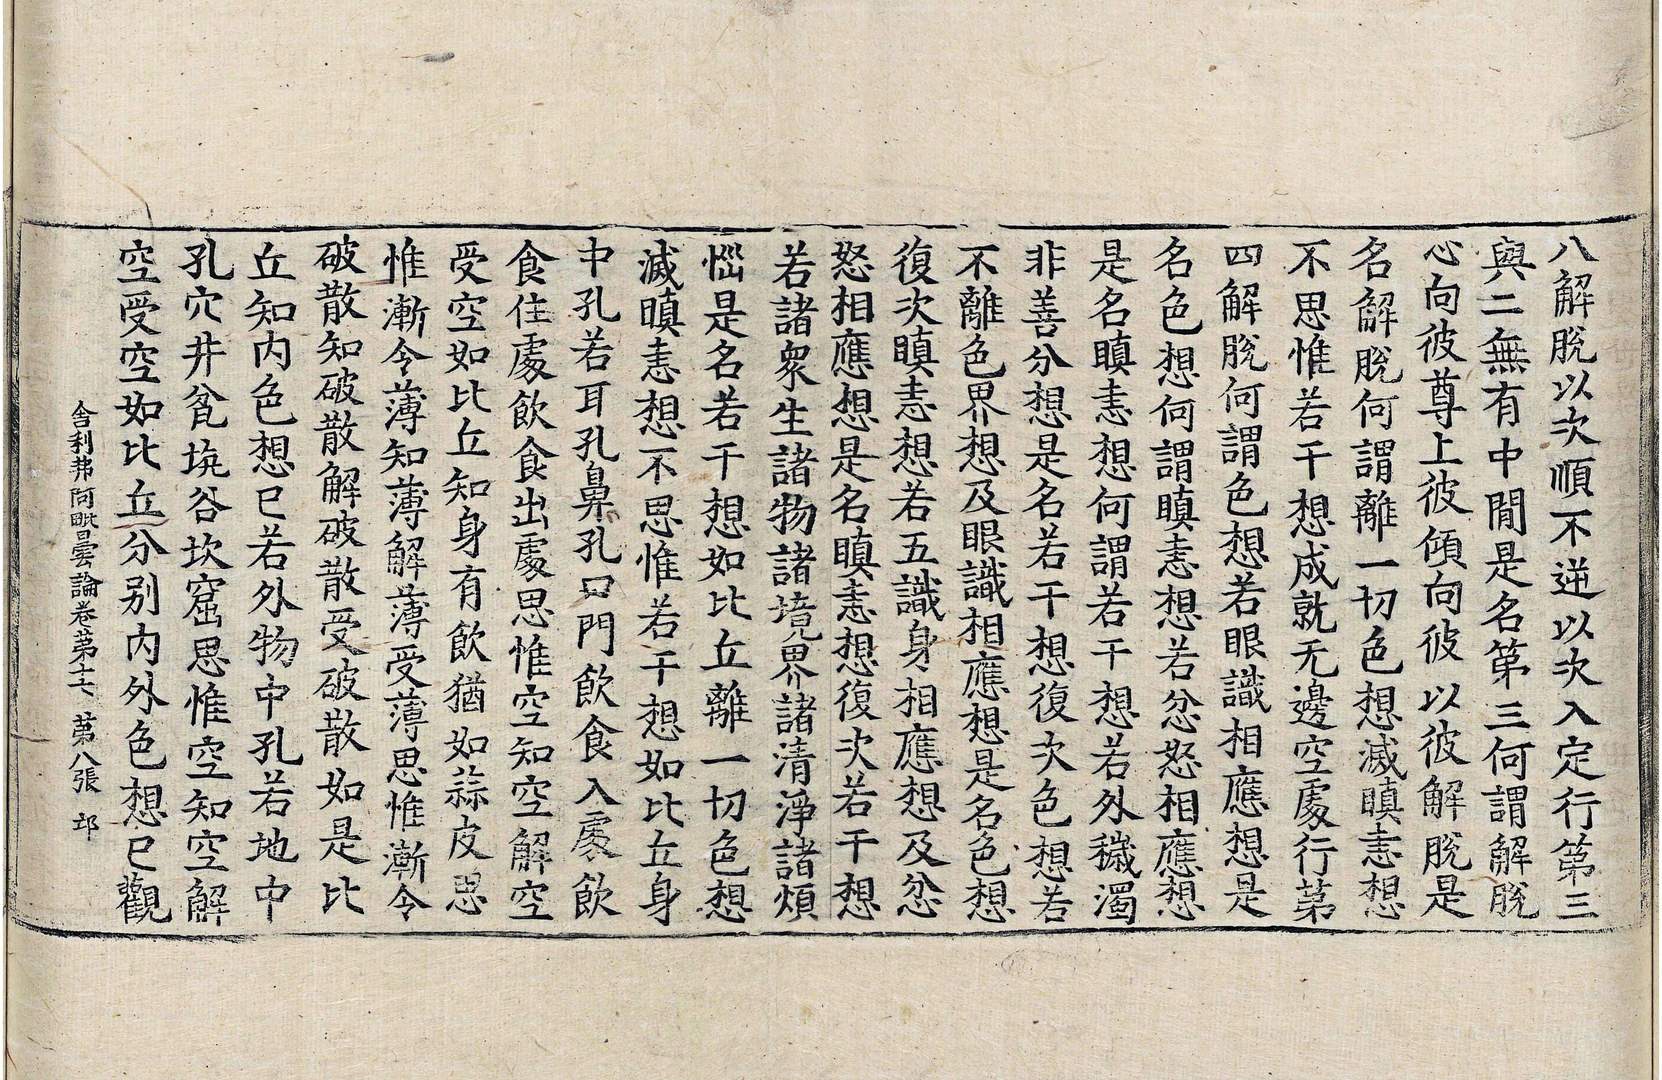 八解脫以次順不逆以次入定行第三
與二無有中閒是名第三何謂解脫
心向彼尊上彼傾向彼以彼解脫是
名解脫何謂離一切色想滅瞋恚想
不思惟若干想成就无邊空處行第
四解脫何謂色想若眼識相應想是
名色想何謂瞋恚想若忿怒相應想
是名瞋恚想何謂若干想若外穢濁
非善分想是名若干想復次色想若
不離色界想及眼識相應想是名色想
復次瞋恚想若五識身相應想及忿
怒相應想是名瞋恚想復次若干想
若諸衆生諸物諸境界諸清淨諸煩
惱是名若干想如比丘離一切色想
滅瞋恚想不思惟若干想如比丘身
中孔若耳孔鼻孔口門飲食入處飲
食住處飲食出處思惟空知空解空
受空如比丘知身有飲猶如蒜皮思
惟漸令薄知薄解薄受薄思惟漸令
破散知破散解破散受破散如是比
丘知內色想已若外物中孔若地中
孔穴井瓮坑谷坎窟思惟空知空解
空受空如比丘分別內外色想已觀
舍利弗阿毗曇論卷第十七 第八張 卭